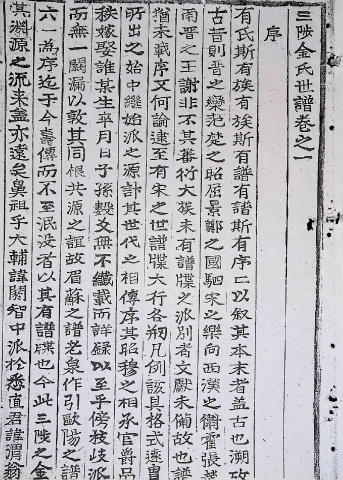 三陟金氏世譜卷之一
序
有氏斯有族有族斯有譜有譜斯有序二以叙其本末者盖古也溯攷
古昔則晋之欒范楚之昭屈景鄭之國駟宋之樂向西漢之衛霍張
南晋之王謝非不其蕃衍大族未有譜牒之派別者文献未備故也譜
猶未載序又何論逮至有宋之世譜牒大行各刱凡例該具格式遡
所出之始中繼始派之源計其世代之相傳序其昭穆之相承官爵品
秩嫁娶誰某生卒月日子孫數爻無不纖載而詳録以至乎傍枝歧派
而無一闕漏以敦其同根共源之誼故眉蘇之譜老泉作引歐陽之譜
六一為序迄于今壽傳而不至泯没者以其有譜牒也今此三陟之金
其淵源之流来盖亦遠矣鼻祖乎大輔諱閼智中派於悉直君諱渭翁